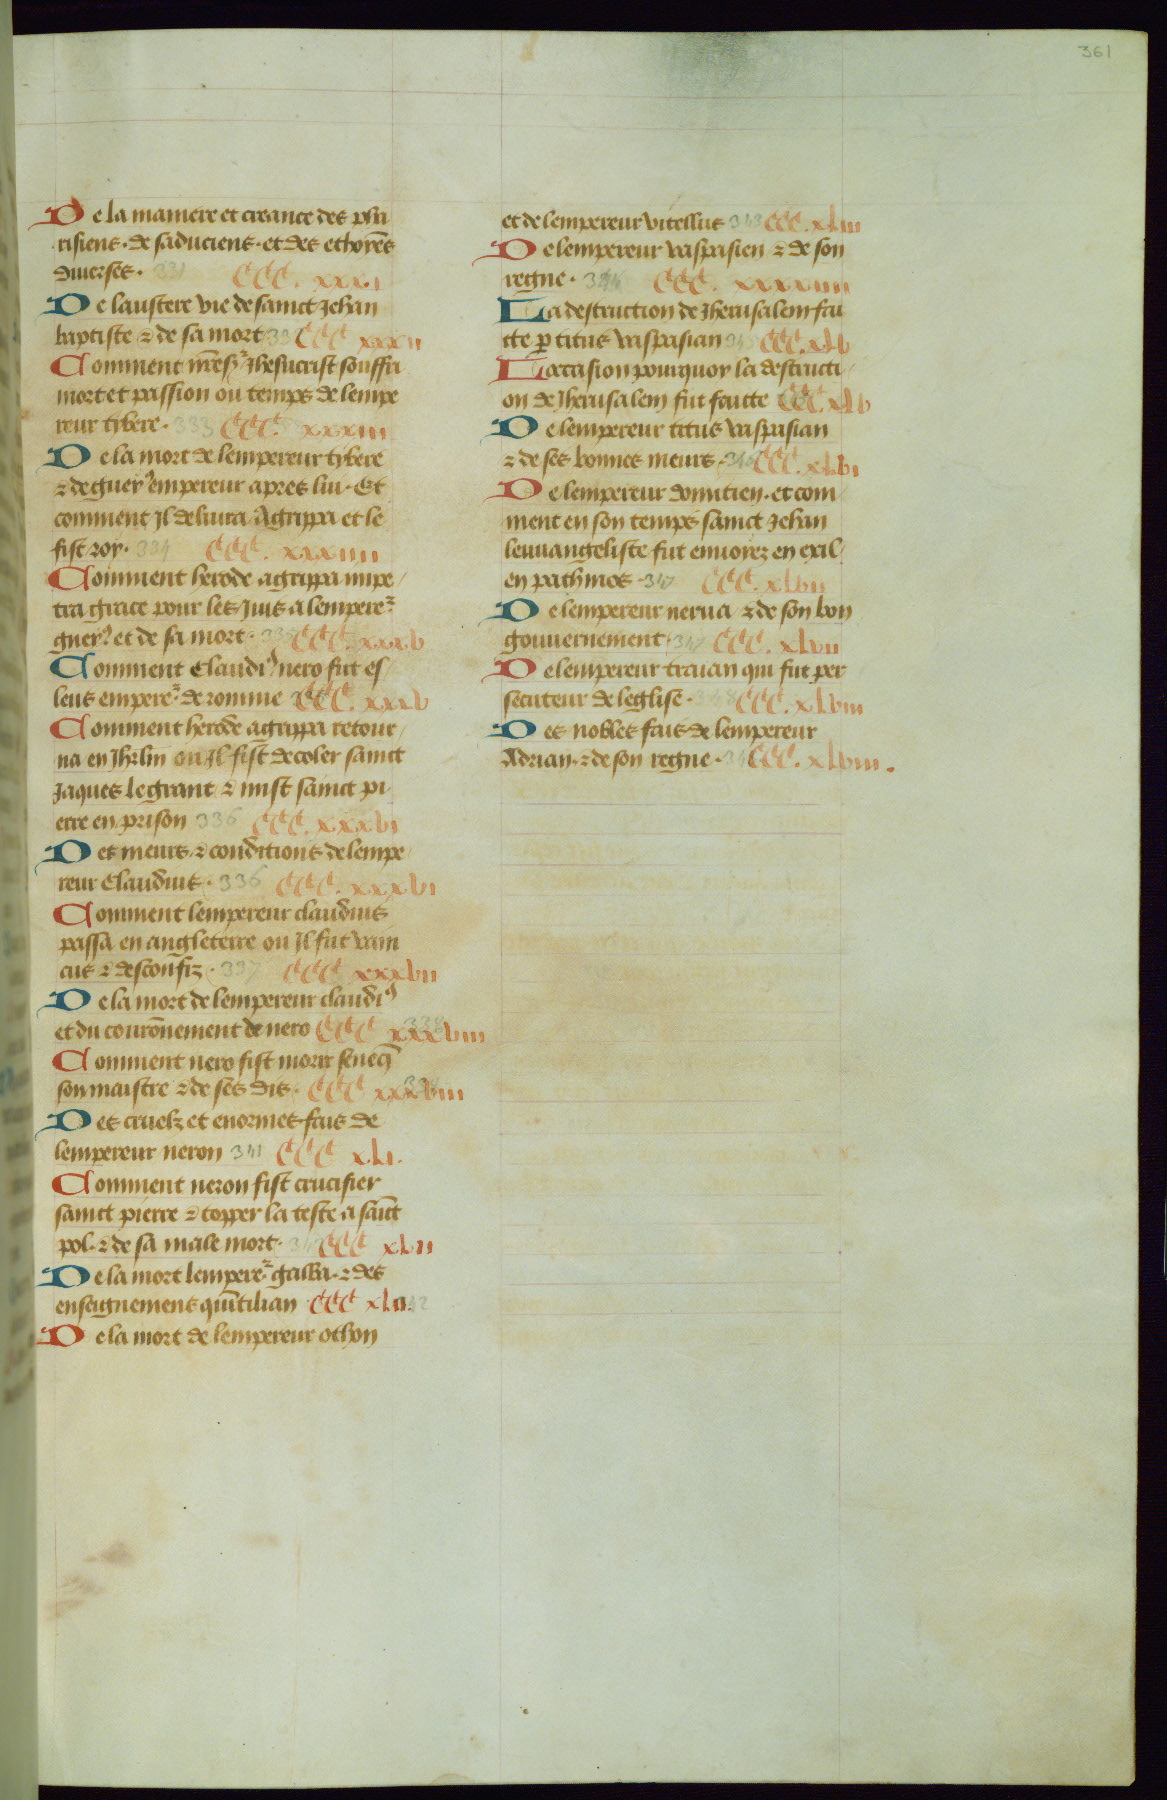 361
De la maniere et creance des pha
risiens. de saduciens. et des ethoyẽs
diuerses. 331 CCC. xxxi
De laustere vie de sainct Jehan
baptiste ⁊ de sa mort CCC xxxii
Comment nrẽ sʳ Jhesucrist souffri
mort et passion ou temps de lempe
reur tybere. 333 CCC. xxxiii
De la mort de lempereur tybere
⁊ de guerꝰ empereur apres lui. Et
comment Il deliura Agrippa et le
fist roy. 334 CCC. xxxiiii
Comment herode agrippa impe/
tra grace pour les Juifs a lempereʳ
guerꝰ et de sa mort. CCC. xxxv
Comment Claudiꝰ nero fut es/
leus empereʳ de romme CCC. xxxv
Comment herode agrippa retour/
na en Jhrlm ou Il fist decoler sainct
Jaques le grant ⁊ mist sainct pi
erre en prison 336 CCC. xxxvi
Des meurs ⁊ conditions de lempe/
reur Claudius. 336 CCC. xxxvi
Comment lempereur claudius
passa en angleterre ou Il fut vain
cus ⁊ desconfiz. 337 CCC xxxvii
De la mort de lempereur claudiꝰ
et du courõnement de nero CCC xxxviii 338
Comment nero fist morir seneq̃
son maistre ⁊ de ses dis. CCC xxxviii
Des cruelz et enormes fais de
lempereur neron 341 CCC xli.
Comment neron fist crucifier
sainct pierre ⁊ copper la teste a saĩct
pol. ⁊ de sa male mort. CCC xlii
De la mort lempereʳ galba. ⁊ des
enseignemens quĩtilian CCC xlii. 342
De la mort de lempereur othon
et de lempereur vitellus 343 CCC. xliii
De lempereur vaspasien ⁊ de son
regne. 344 CCC. xxxxiiii
La destruction de Jherusalem fai
cte ꝑ titus vaspasian CCC. xlv
Loccasion pourquoy la destructi/
on de Jherusalem fut faicte CCC. xlv
De lempereur titus vaspasian
⁊ de ses bonnes meurs. 346 CCC. xlvi
De lempereur domitien. et com
ment en son temps sainct Jehan
leuuangeliste fut enuoiez en exil/
en pathmos. 347 CCC. xlvii
De lempereur nerua ⁊ de son bon
gouuernement 347 CCC. xlvii
De lempereur traian qui fut per
secuteur de leglise. 348 CCC. xlviii
Des nobles fais de lempereur
Adrian. ⁊ de son regne. CCC. xlviii.